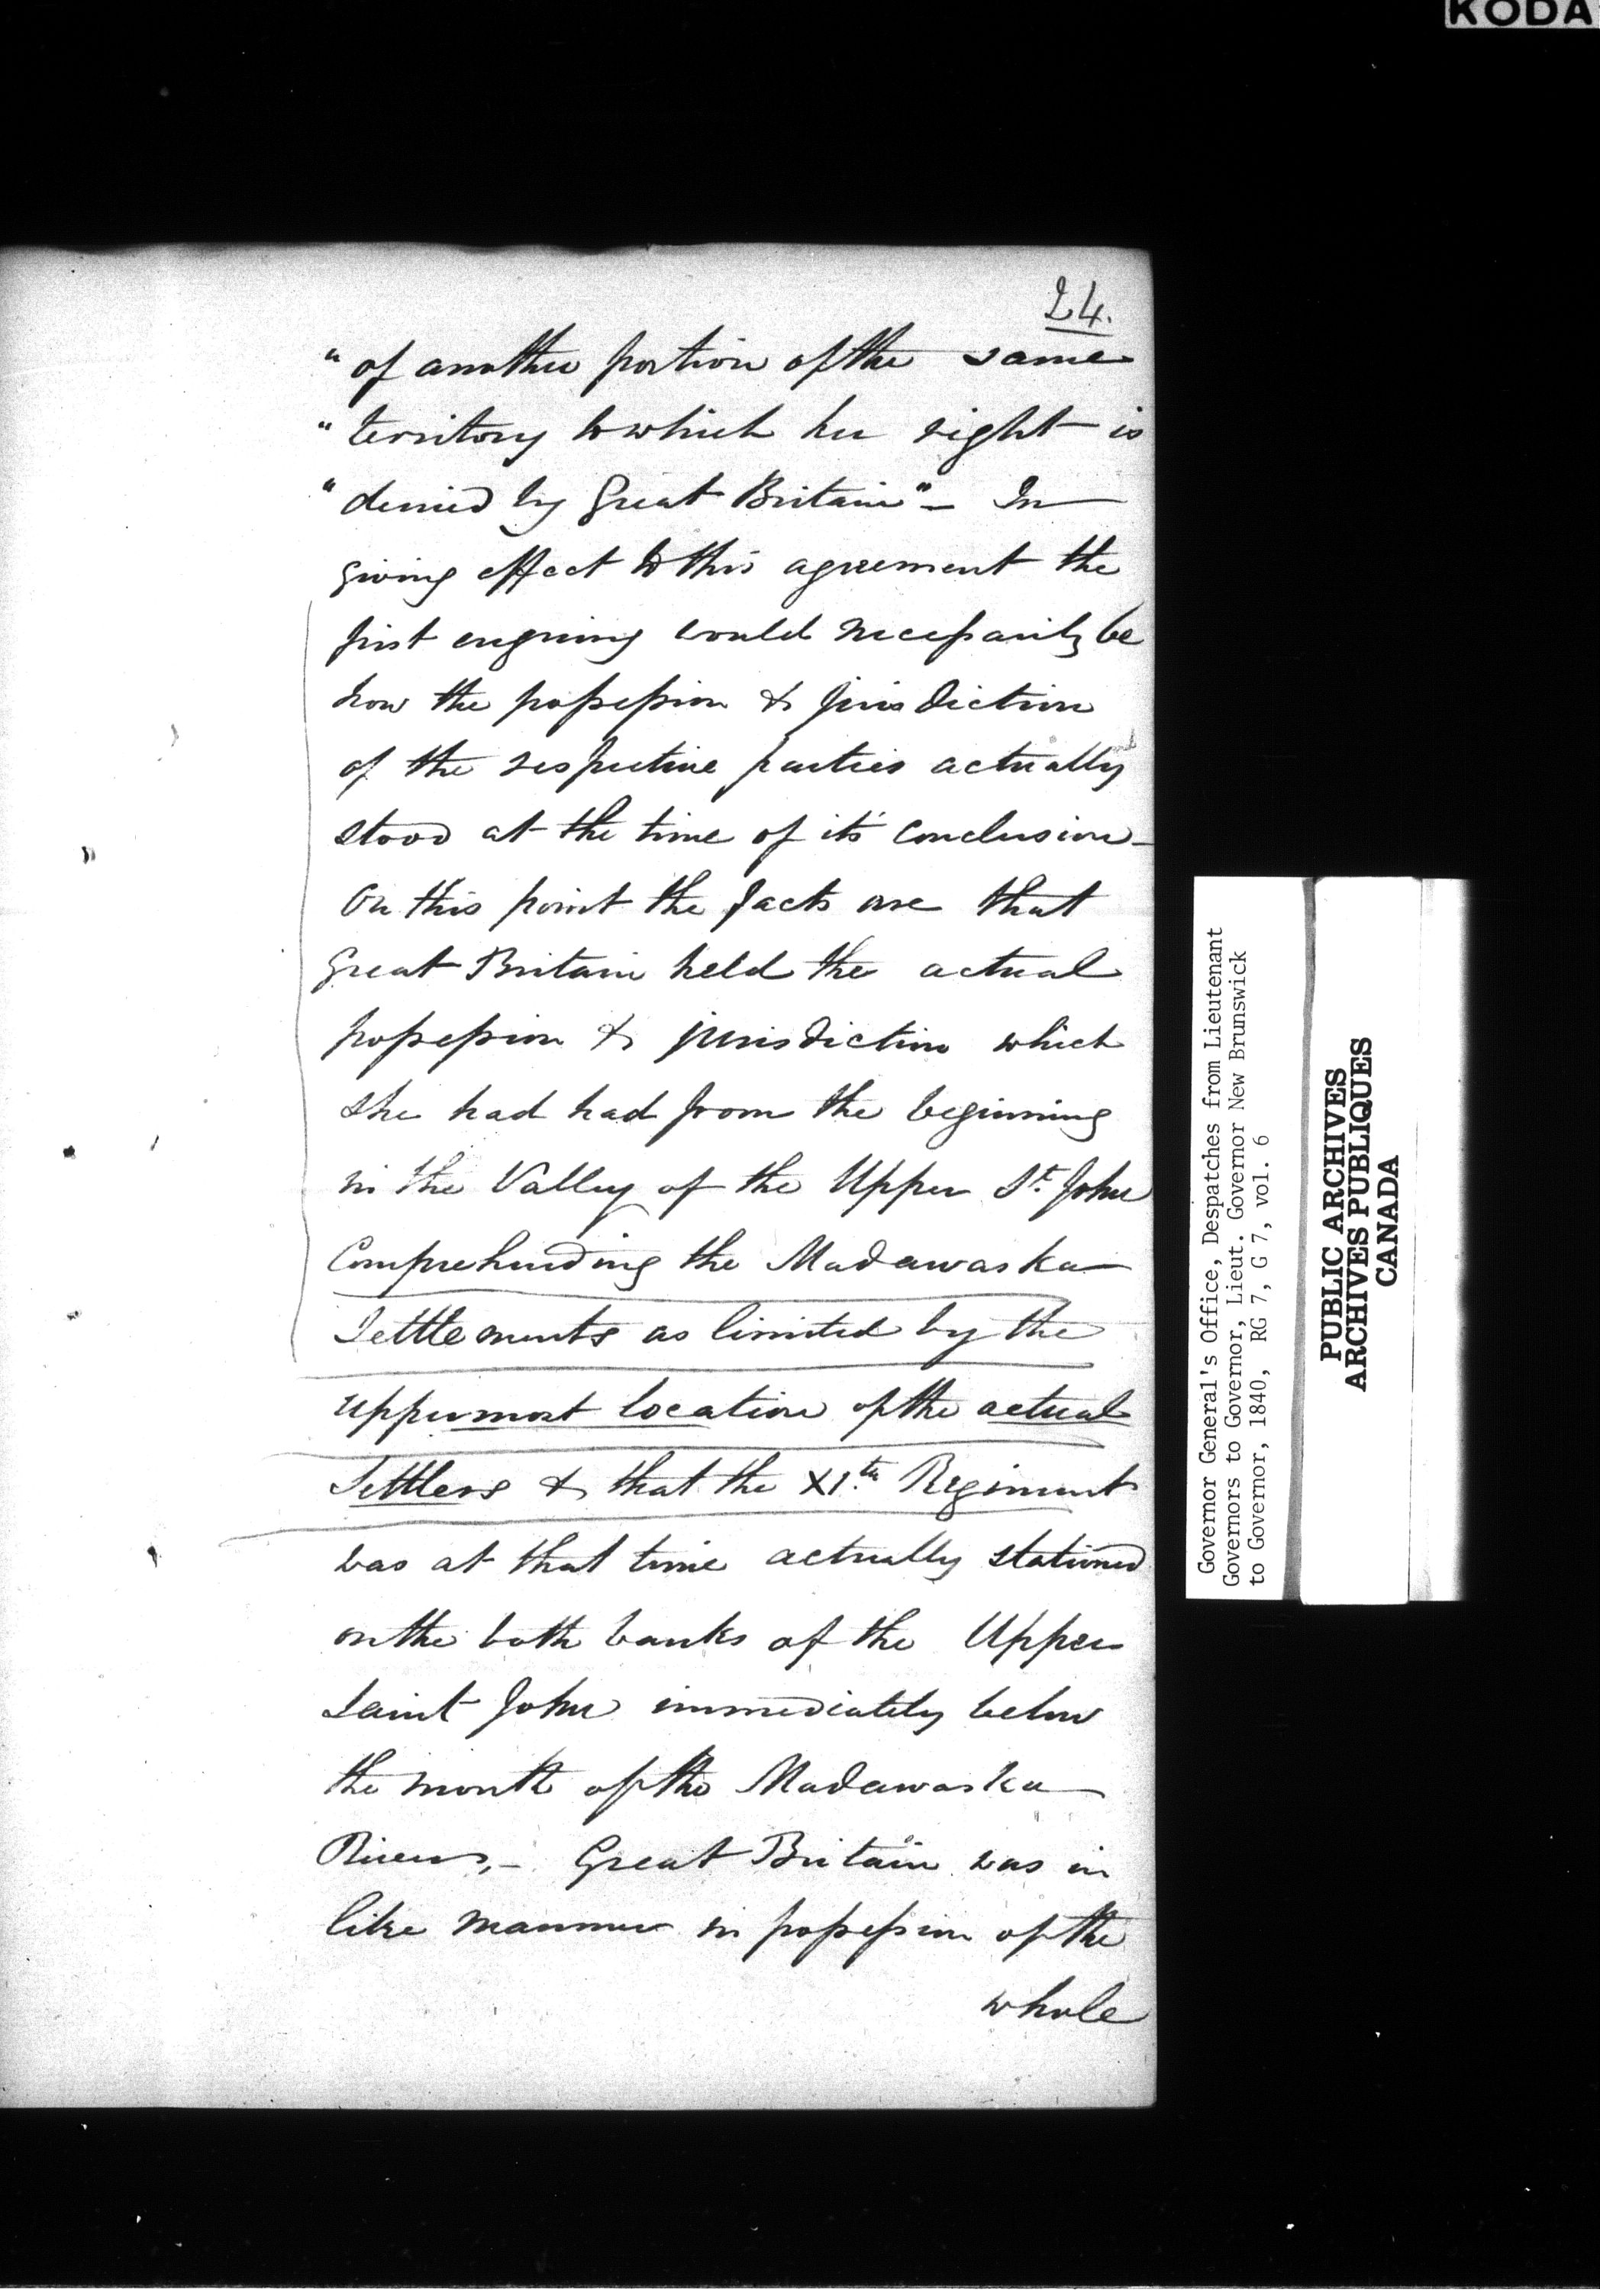 KODA
24.
" of another portion of the same
" territory to which her right is
" denied by Great Britain" — In
giving effect to this agreement the
first enquiry would necessarily be
how the possession & jurisdiction
of the respective parties actually
stood at the time of its conclusion —
On this point the facts are that
Great Britain held the actual
possession & jurisdiction which
she had had from the beginning
in the Valley of the Upper St. John
Comprehending the Madawaska
Settlements as limited by the
uppermost location of the actual
Settlers & that the XIth Regiment
was at that time actually stationed
on the both banks of the Upper
Saint John immediately below
the mouth of the Madawaska
River, — Great Britain was in
like manner in possession of the
whole
Governor General's Office, Despatches from Lieutenant
Governors to Governor, Lieut. Governor New Brunswick
to Governor, 1840, RG 7, G 7, vol. 6
PUBLIC ARCHIVES
ARCHIVES PUBLIQUES
CANADA